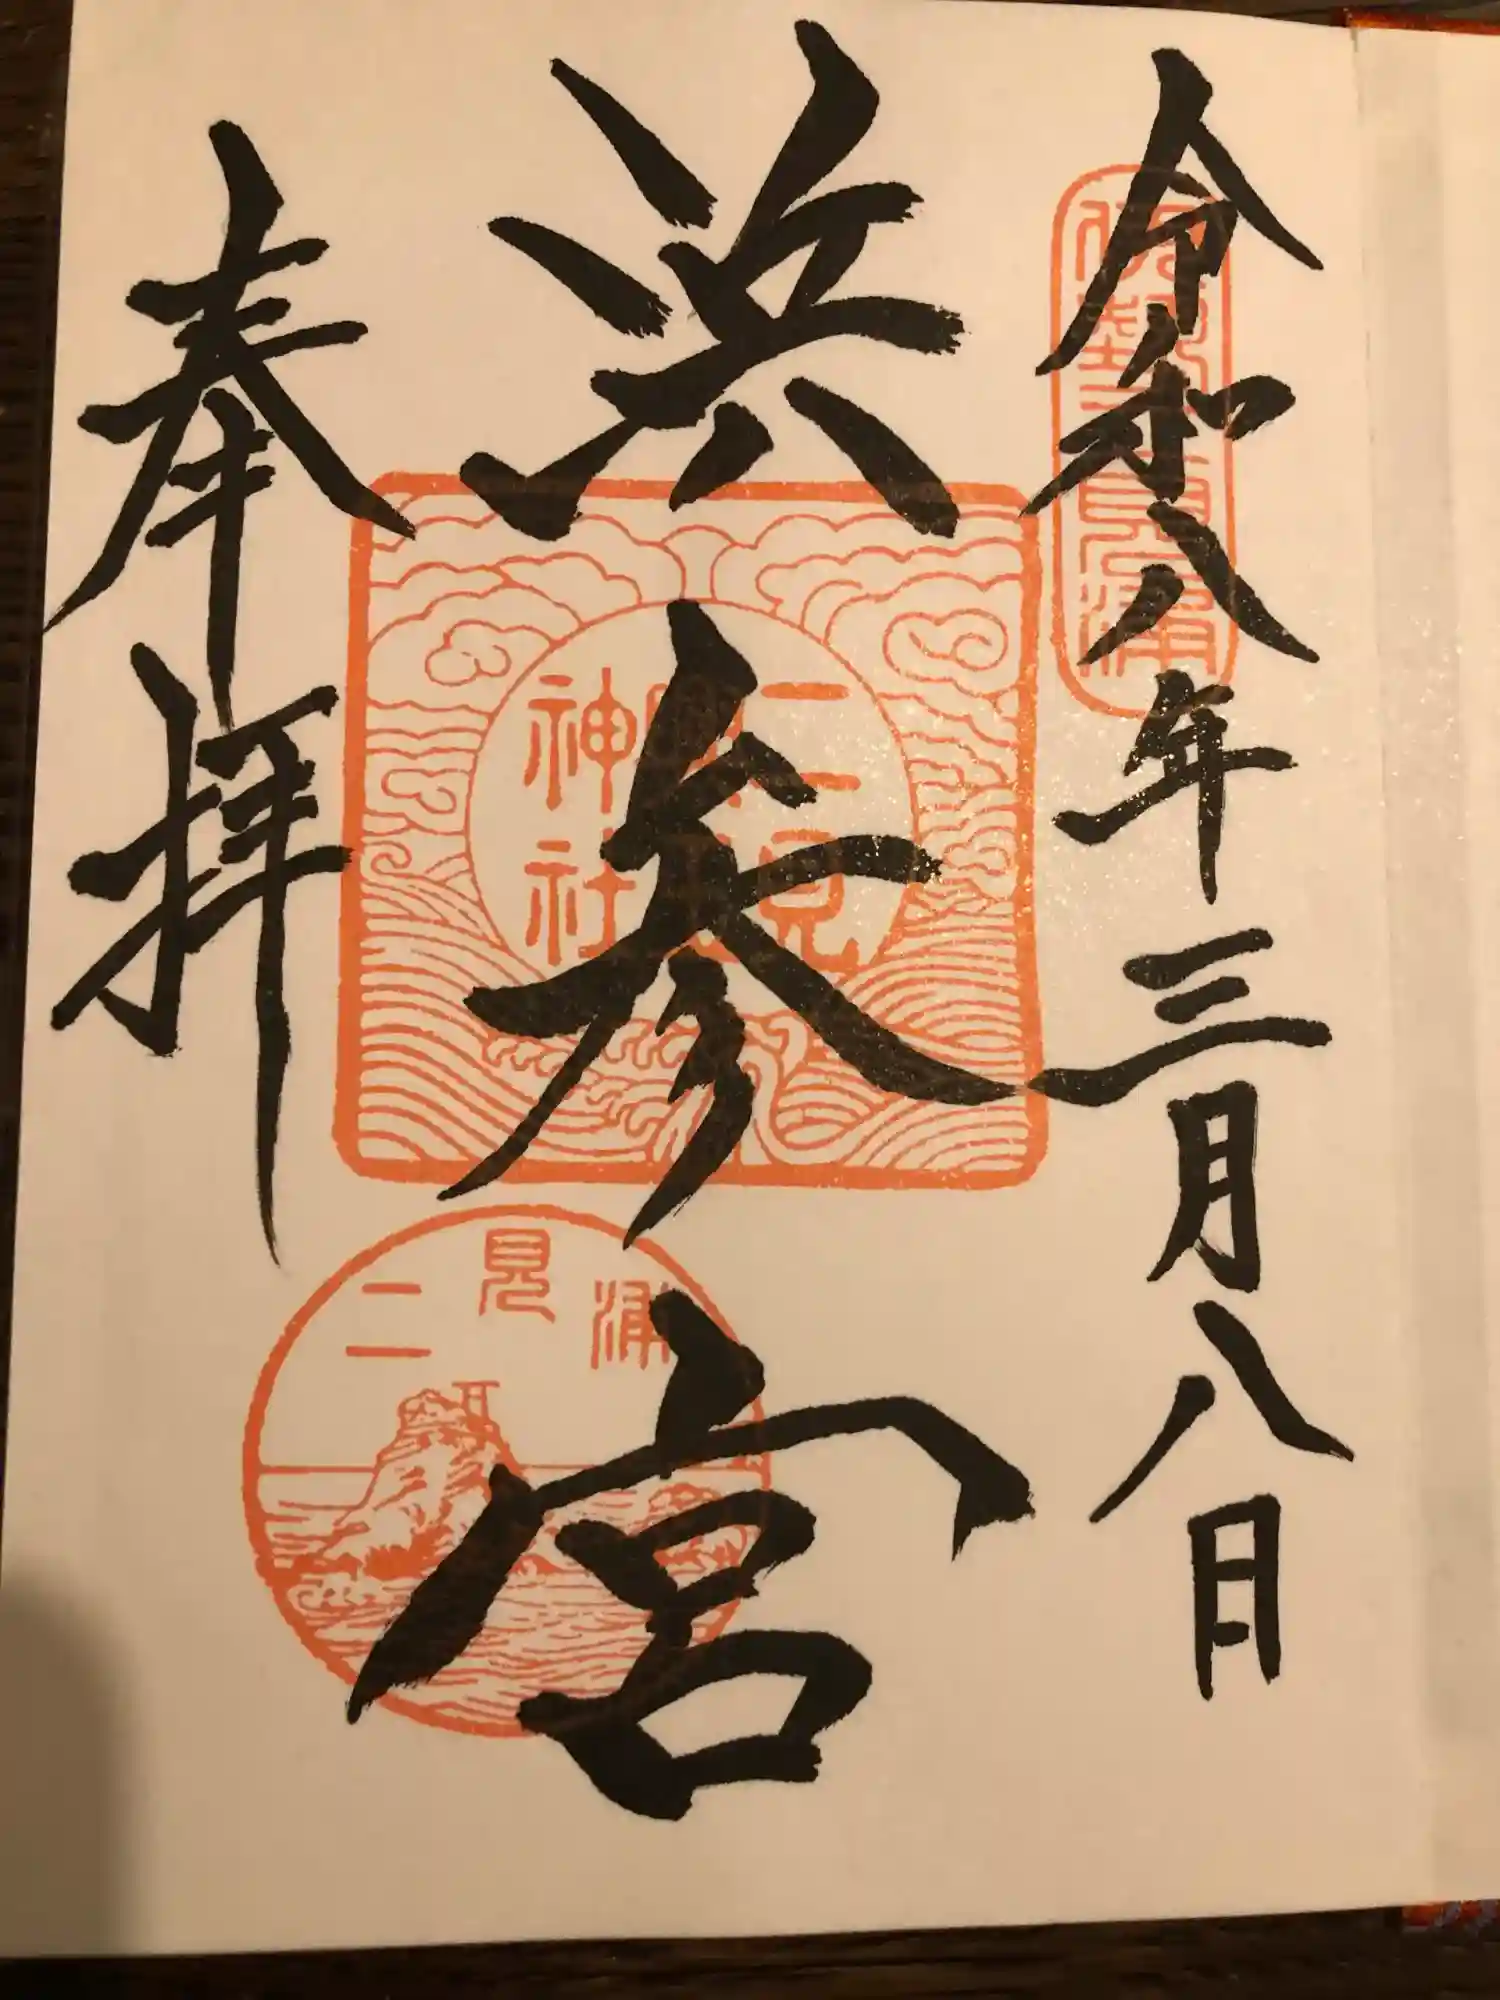 令和八年三月八日
伊勢二見浦
浜参宮
二見興玉神社
二見浦
奉拝